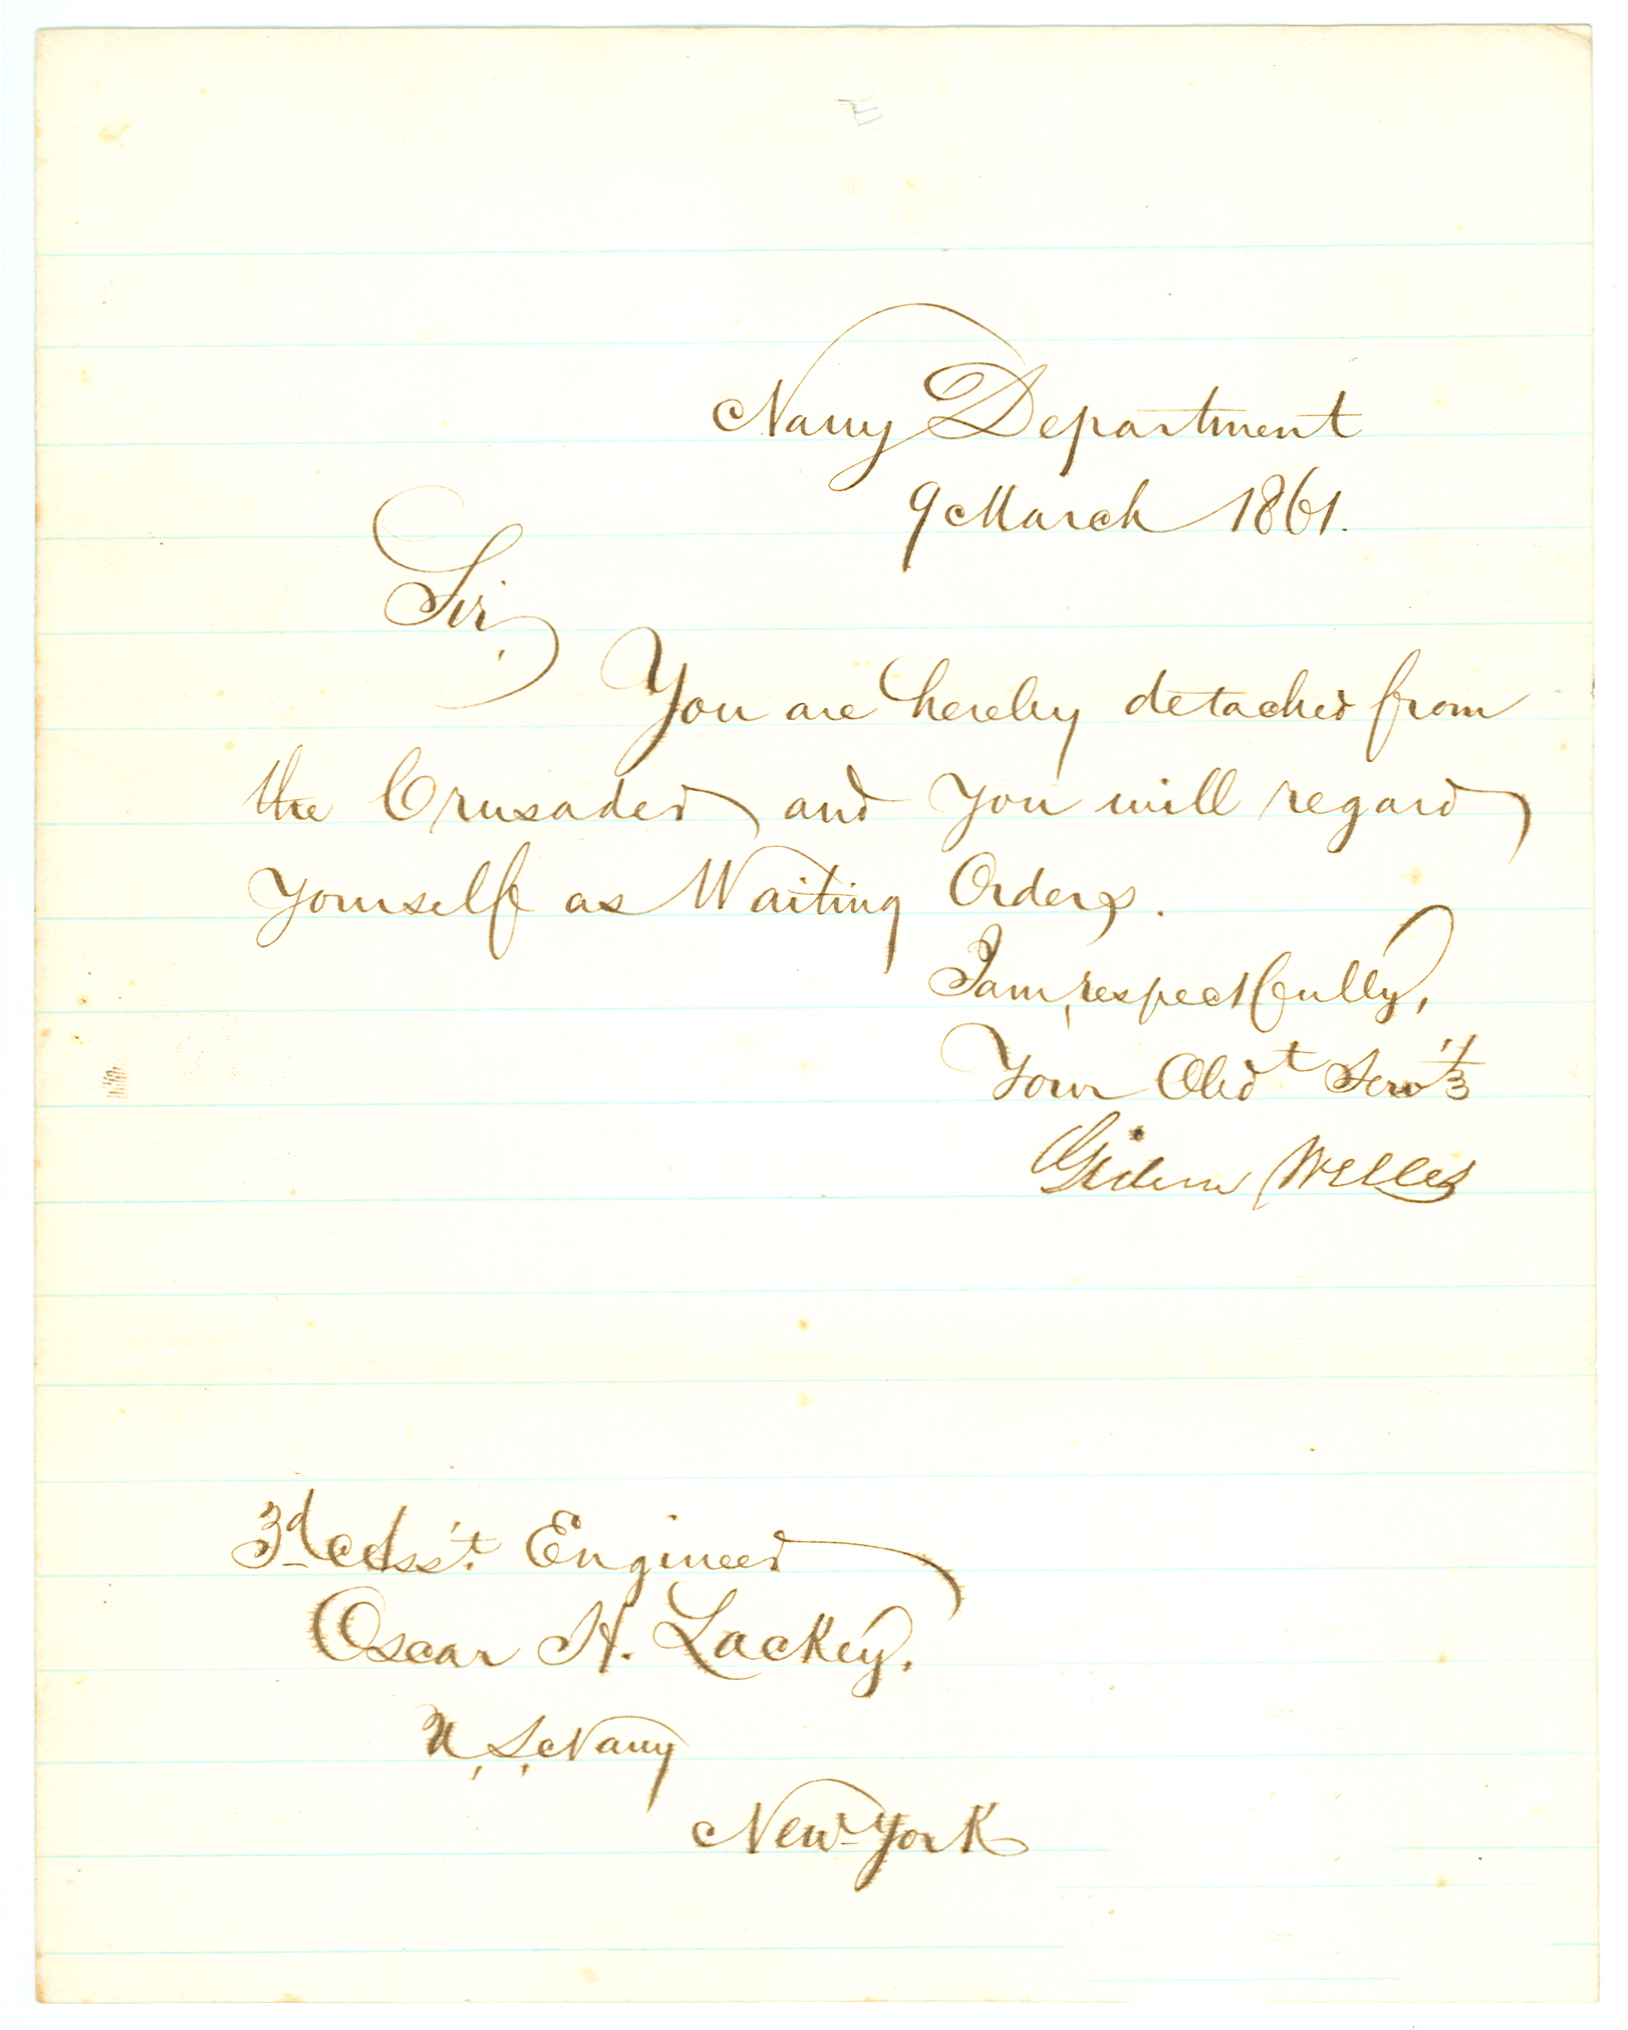 Navy Department
9 March 1861.
Sir,
You are hereby detached from
the Crusader and you will regard
yourself as Waiting Orders.
I am, respectfully,
Your Obdt Servt
Gideon Welles
3d Ass't. Engineer
Oscar H. Lackey.
U.S. Navy
New-York